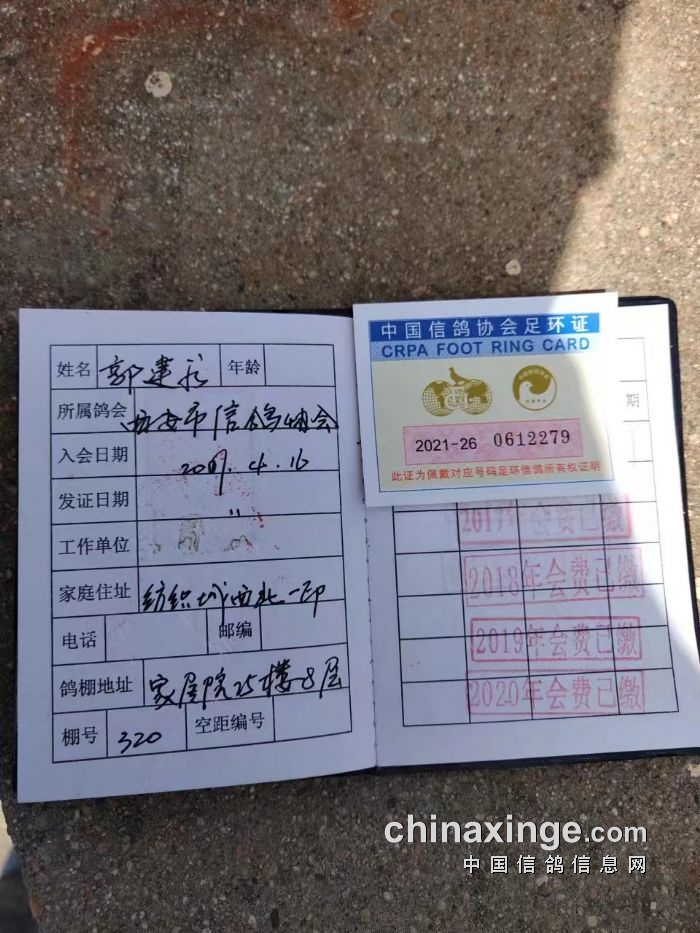 姓名 郭建永 年龄
所属鸽会 西安市信鸽协会
入会日期 2009.4.16
发证日期 "
工作单位
家庭住址 纺织城西北一印
电话 邮编
鸽棚地址 家属院25楼8层
棚号 320 空距编号
中国信鸽协会足环证
CRPA FOOT RING CARD
2021-26 0612279
此证为佩戴对应号码足环信鸽所有权证明
期
2017年会费已缴
2018年会费已缴
2019年会费已缴
2020年会费已缴
chinaxinge.com
中国信鸽信息网